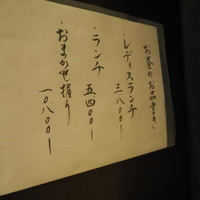 お昼のお品書き
・レディスランチ
三、八〇〇ー
・ランチ
五、四〇〇ー
・おまかせ握り
一〇、八〇〇ー